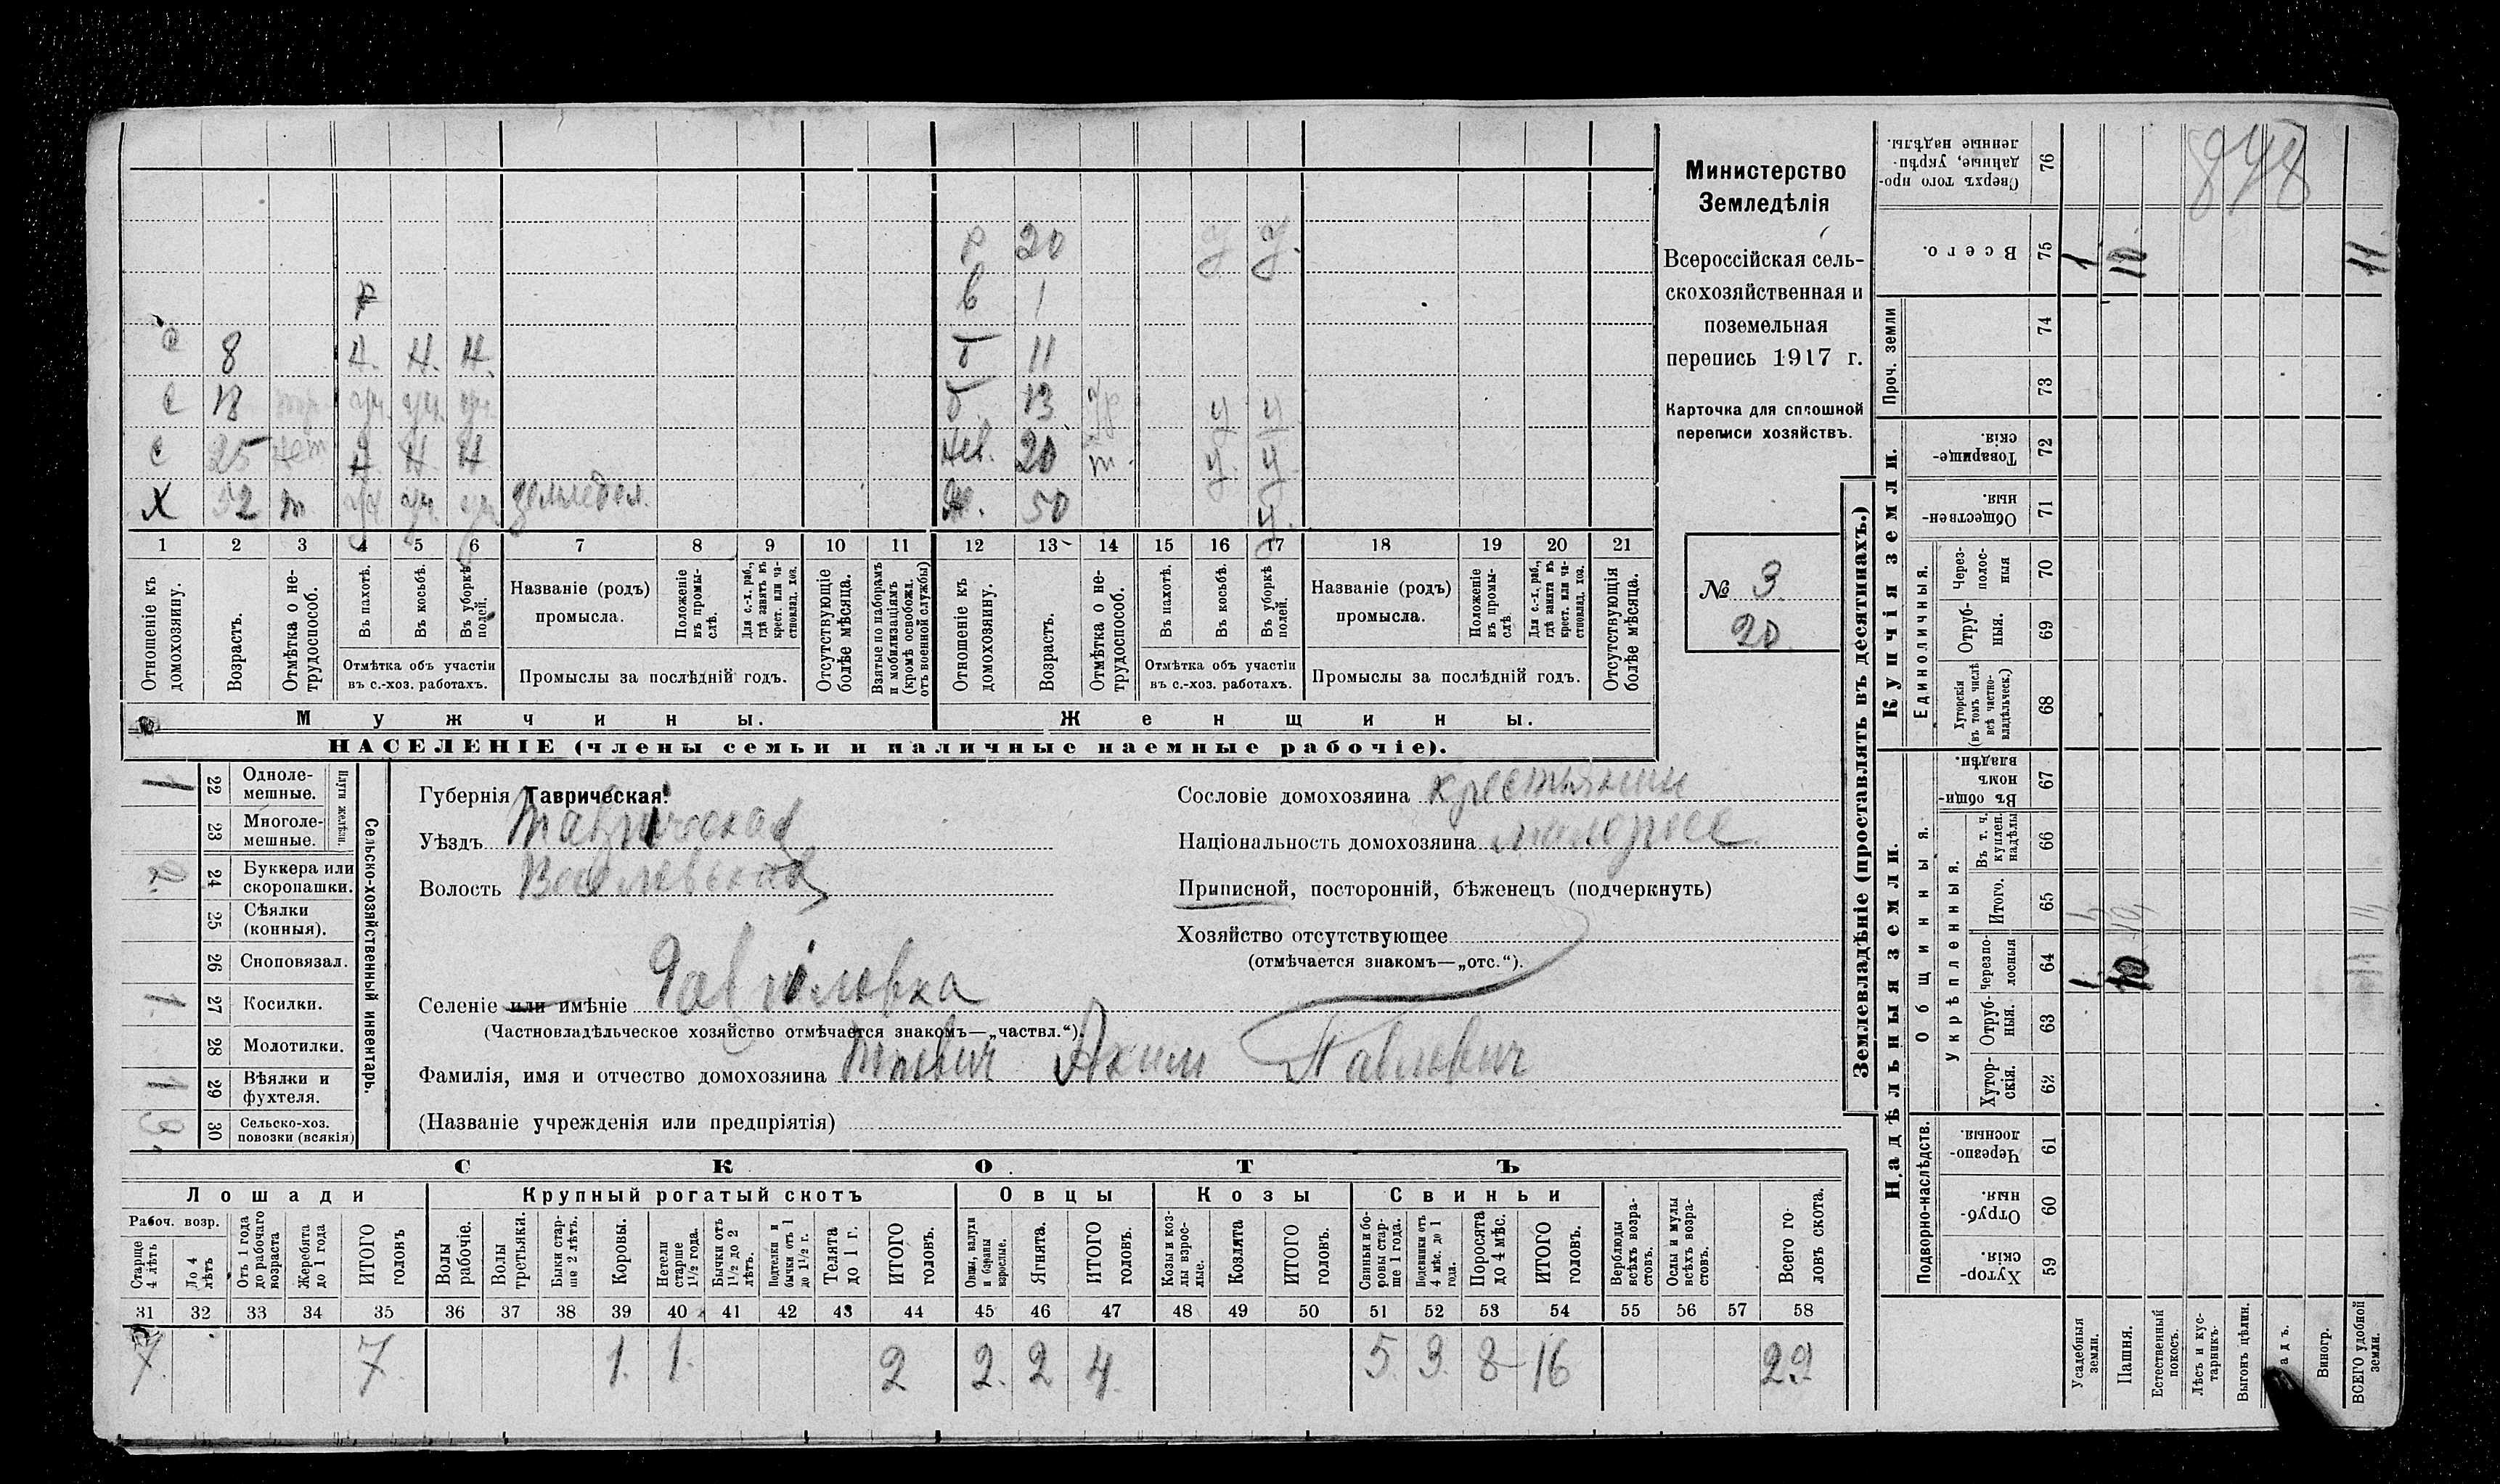 848
Министерство
Земледѣлія
Всероссійская сель-
скохозяйственная и
поземельная
перепись 1917 г.
Карточка для сплошной
переписи хозяйствъ.
№ 3
20
р 20 у у.
в 1
с 8 н. н. н. т 11
с уч. уч. уч. 13 у у
с 25 нет н. н. н 20 т. у. у
х 52 т уч уч. уч земледел. ж. 50 у.
1 2 3 4 5 6 7 8 9 10 11 12 13 14 15 16 17 18 19 20 21
Отношеніе къ домохозяину.
Возрастъ.
Отмѣтка о не-трудоспособ.
Въ пахотѣ.
Въ косьбѣ.
Въ уборкѣ полей.
Отмѣтка объ участіи
въ с.-хоз. работахъ.
Названіе (родъ)
промысла.
Положеніе въ промы-слѣ.
Для с.-х. раб., гдѣ занятъ въ крест. или ча-стновлад. хоз.
Промыслы за послѣдній годъ.
Отсутствующіе болѣе мѣсяца.
Взятые по наборамъ и мобилизаціямъ (кромѣ освобожд. отъ военной службы)
Отношеніе къ домохозяину.
Возрастъ.
Отмѣтка о не-трудоспособ.
Въ пахотѣ.
Въ косьбѣ.
Въ уборкѣ полей.
Отмѣтка объ участіи
въ с.-хоз. работахъ.
Названіе (родъ)
промысла.
Положеніе въ промы-слѣ.
Для с.-х. раб., гдѣ занята въ крест. или ча-стновлад. хоз.
Промыслы за послѣдній годъ.
Отсутствующія болѣе мѣсяца.
Мужчины.
Женщины.
НАСЕЛЕНІЕ (члены семьи и наличные наемные рабочіе).
Сельско-хозяйственный инвентарь.
Плуги желѣзн.
1 22 Одноле-мешные.
23 Многоле-мешные.
24 Буккера или скоропашки.
25 Сѣялки (конныя).
26 Сноповязал.
1 27 Косилки.
28 Молотилки.
1 29 Вѣялки и фухтеля.
30 Сельско-хоз. повозки (всякія)
Губернія Таврическая.
Уѣздъ
Волость
Селеніе или имѣніе Гавриловка
(Частновладѣльческое хозяйство отмѣчается знакомъ—„частвл.“).
Фамилія, имя и отчество домохозяина Аким Павлович
(Названіе учрежденія или предпріятія)
Сословіе домохозяина крестьянин
Національность домохозяина малоросс
Приписной, посторонній, бѣженецъ (подчеркнуть)
Хозяйство отсутствующее
(отмѣчается знакомъ—„отс.“).
СКОТЪ
Лошади
Крупный рогатый скотъ
Овцы
Козы
Свиньи
Рабоч. возр.
Старше 4 лѣтъ
До 4 лѣтъ
Отъ 1 года до рабочаго возраста
Жеребята до 1 года
ИТОГО головъ
Волы рабочіе.
Волы третьяки.
Быки стар-ше 2 лѣтъ.
Коровы.
Нетели старше 1½ года.
Бычки отъ 1½ до 2 лѣтъ.
Подтелки и бычки отъ 1 до 1½ г.
Телята до 1 г.
ИТОГО головъ.
Овцы, валухи и бараны взрослые.
Ягнята.
ИТОГО головъ.
Козы и коз-лы взрос-лые.
Козлята
ИТОГО головъ.
Свиньи и бо-ровы стар-ше 1 года.
Подсвинки отъ 4 мѣс. до 1 года.
Поросята до 4 мѣс.
ИТОГО головъ.
Верблюды всѣхъ возра-стовъ.
Ослы и мулы всѣхъ возра-стовъ.
Всего го-ловъ скота.
31 32 33 34 35 36 37 38 39 40 41 42 43 44 45 46 47 48 49 50 51 52 53 54 55 56 57 58
7. 7. 1. 1. 2 2. 2 4. 5. 3. 8 16 29
Землевладѣніе (проставлять въ десятинахъ.)
Надѣльныя земли.
Купчія земли.
Проч. земли
Подворно-наслѣдств.
Общинныя.
Укрѣпленныя.
Единоличныя.
Сверхъ того про-данные, укрѣп-ленные надѣлы. 76
Всего. 75 1 10 11
74
73
Товарище-скія. 72
Обществен-ныя. 71
Через-полос-ныя 70
Отруб-ныя. 69
Хуторскія (въ томъ числѣ всѣ частно-владѣльческ.) 68
Въ общи-номъ владѣн. 67
Въ т. ч. куплен. надѣлы 66
Итого. 65
Черезпо-лосныя 64 1 10
Отруб-ныя. 63
Хутор-скія. 62
Черезпо-лосныя. 61
Отруб-ныя. 60
Хутор-скія. 59
Усадебныя земли.
Пашня.
Естественный покосъ.
Лѣсъ и кус-тарникъ.
Выгонъ цѣлин.
Виногр.
ВСЕГО удобной земли.